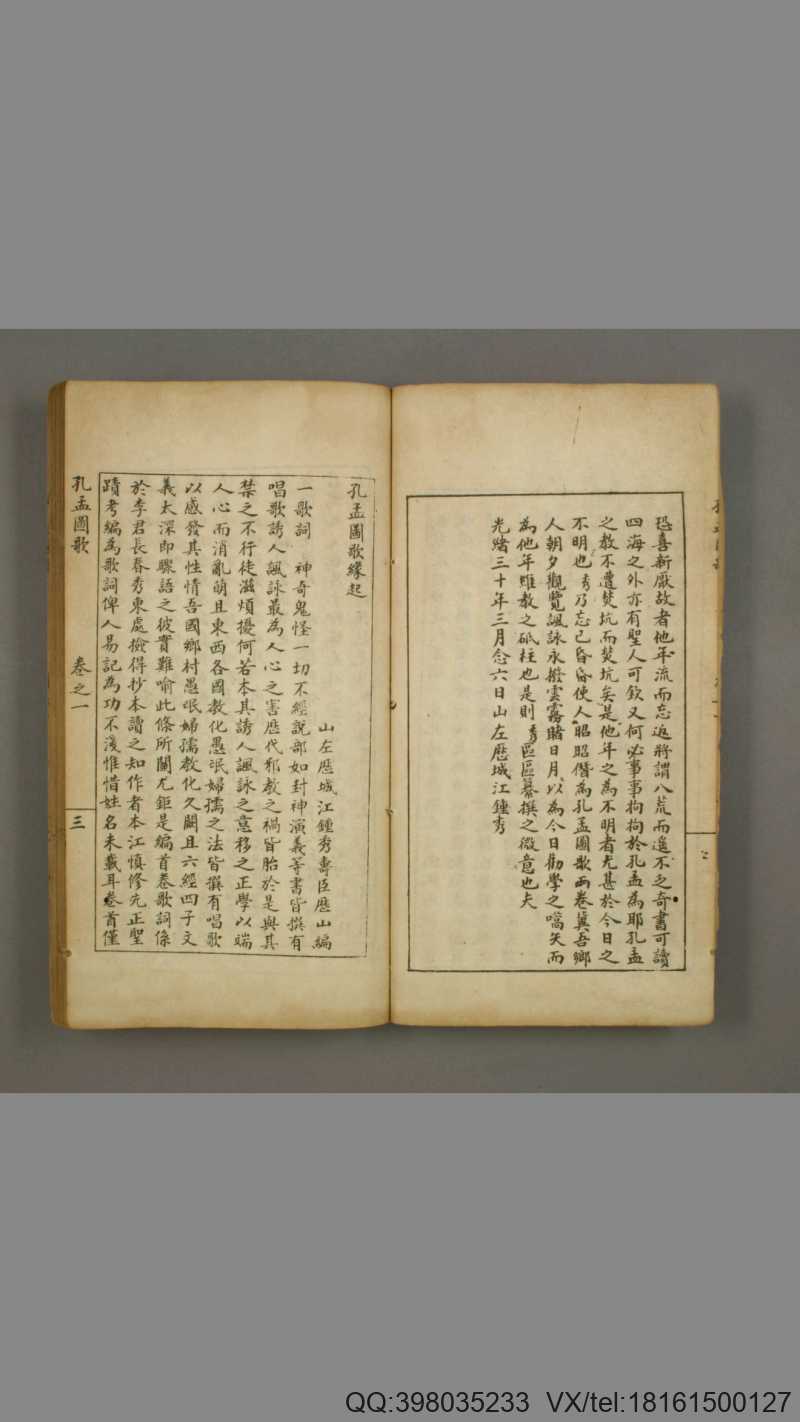 恐喜新厭故者他年流而忘返將謂八荒而遙不乏奇書可讀
四海之外亦有聖人可欽又何必事事拘拘於孔孟為耶孔孟
之教不遭焚坑而焚坑矣是他年之為不明者尤甚於今日之
不明也秀乃忘己昏昏使人昭昭僭為孔孟圖歌兩卷冀吾鄉
人朝夕觀覽諷詠永撥雲霧睹日月以為今日勸學之嚆矢而
為他年雖教之砥柱也是則秀區區纂撰之微意也夫
光緒三十年三月念六日山左歷城江鍾秀
孔孟圖歌緣起
山左歷城江鍾秀壽臣歷山編
一歌詞 神奇鬼怪一切不經說部如封神演義等書皆撰有
唱歌誘人諷詠最為人心之害歷代邪教之禍皆胎於是與其
禁之不行徒滋煩擾何若本其誘人諷詠之意移之正學以端
人心而消亂萌且東西各國教化愚氓婦孺之法皆撰有唱歌
以感發其性情吾國鄉村愚氓婦孺教化久闕且六經四子文
義太深即驟語之彼實難喻此條所關尤鉅是編首卷歌詞係
於李君長春秀東處撿得抄本讀之知作者本江慎修先正聖
蹟考編為歌詞俾人易記為功不淺惟惜姓名未載耳卷首僅
孔孟圖歌 卷之一 三
QQ:398035233 VX/tel:18161500127